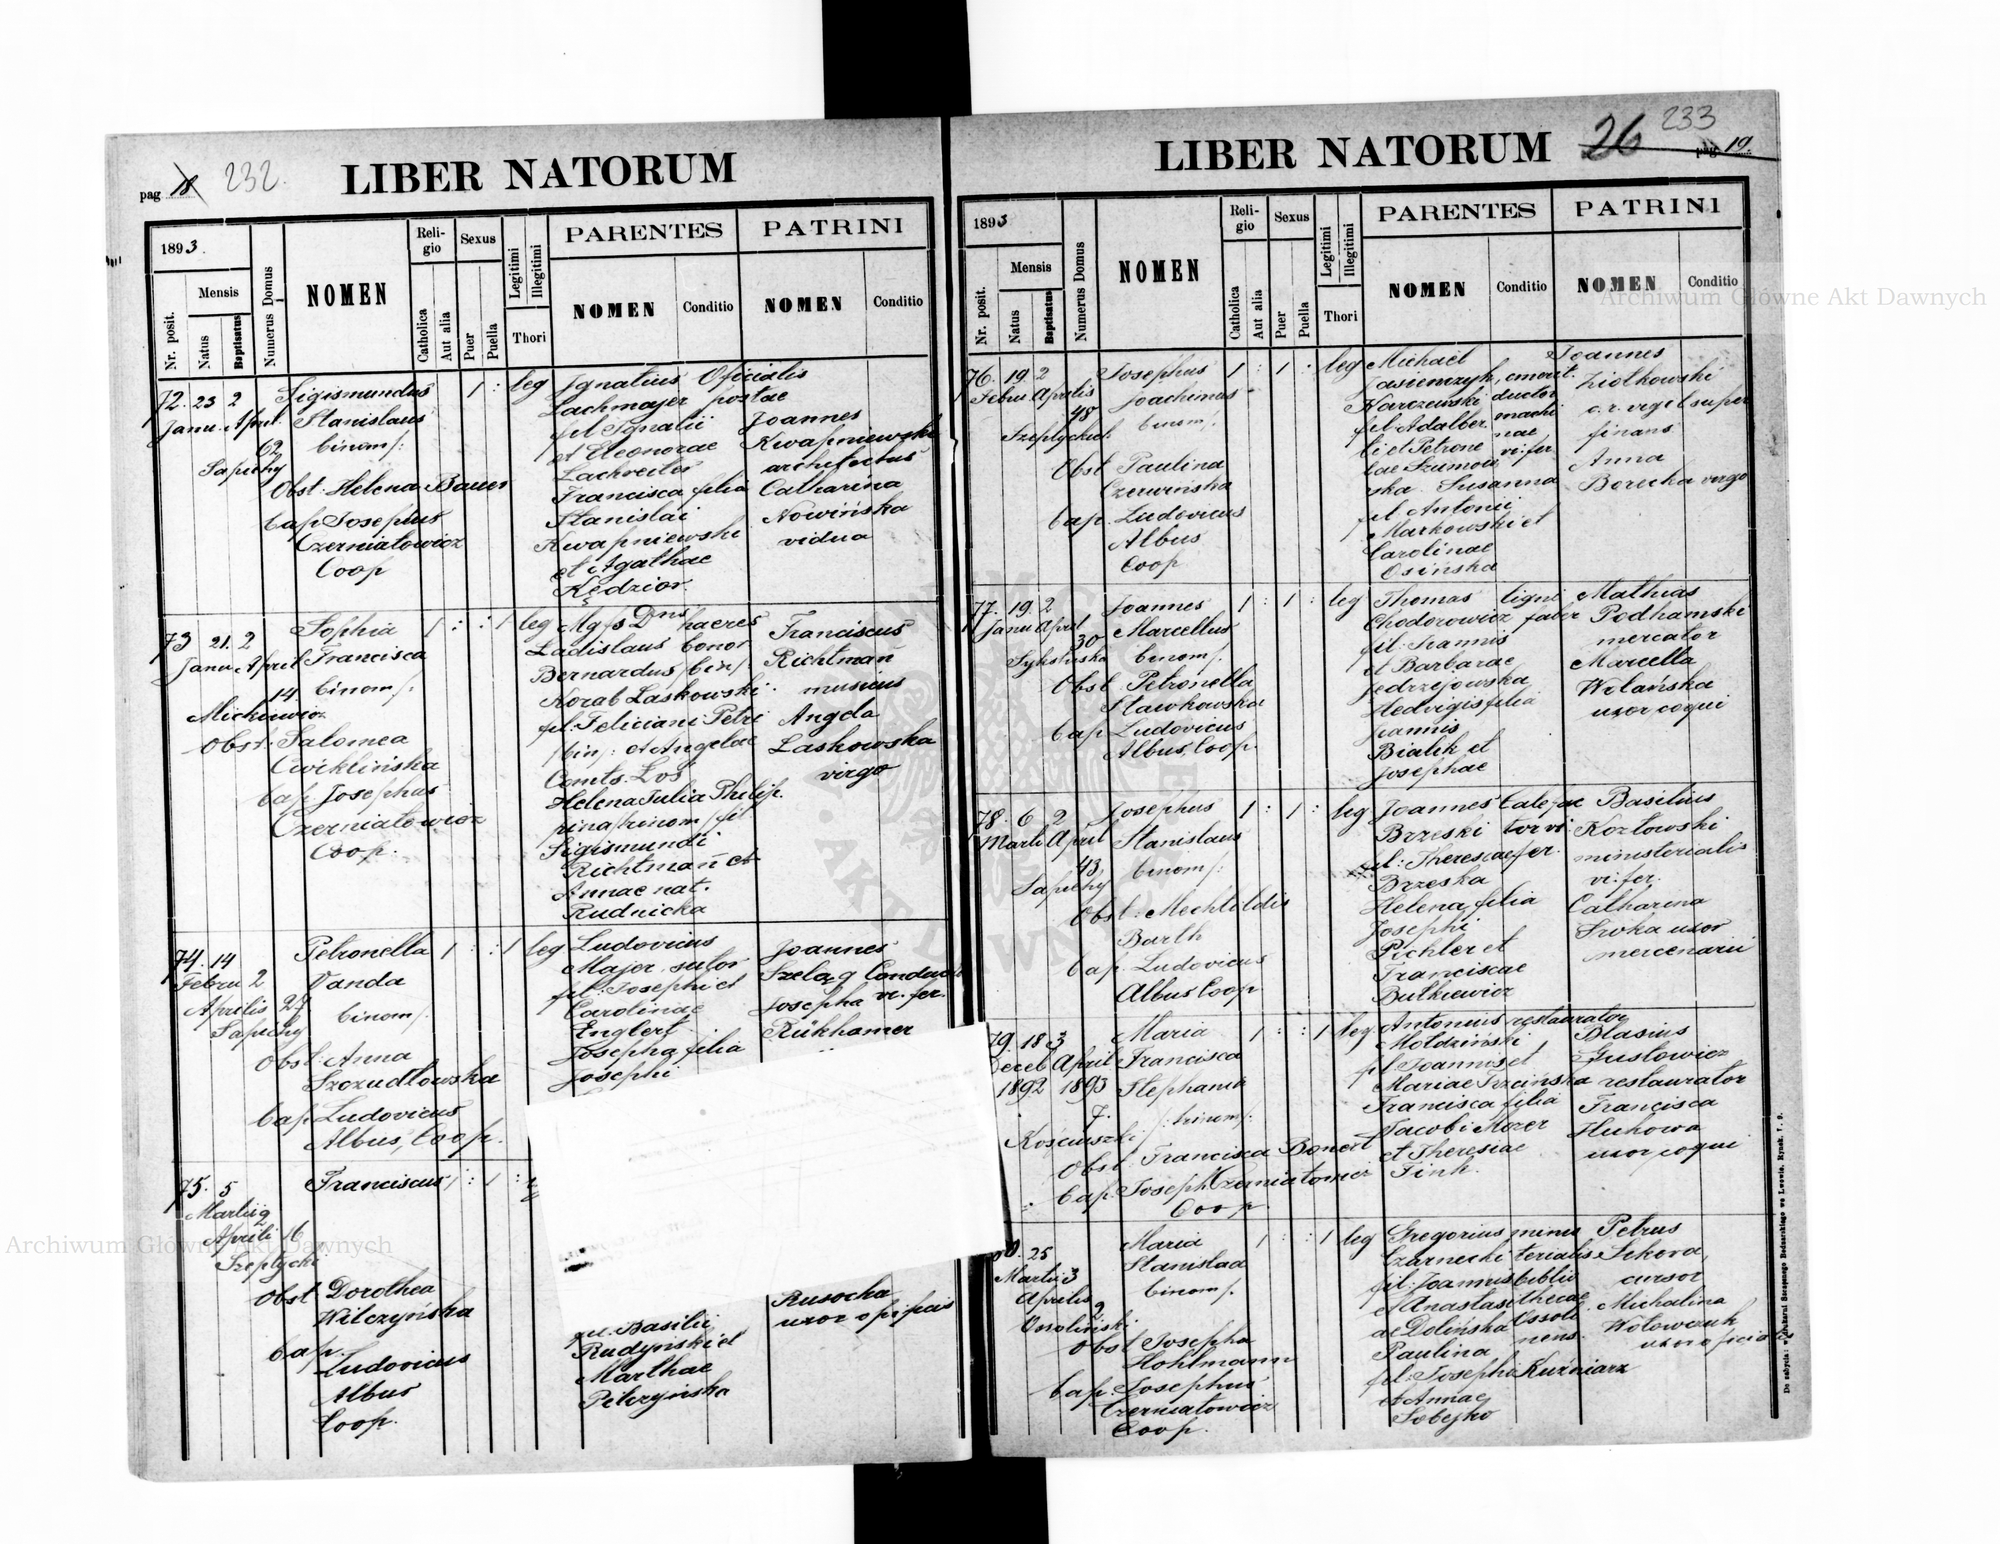 pag 18 232.
LIBER NATORUM
1893.
Nr. posit.
Mensis
Natus
Baptisatus
Numerus Domus
NOMEN
Religio
Catholica
Aut alia
Sexus
Puer
Puella
Legitimi
Illegitimi
Thori
PARENTES
NOMEN
Conditio
PATRINI
NOMEN
Conditio
72. 23 2 Sigismundus 1 : leg Ignatius Oficialis
Janu. April. Stanislaus Lachmajer postae
62 binom/: fil Ignatii Joannes
Sapiehy et Eleonorae Kwapniewski
Obst: Helena Bauer Lachreiter architectus
Francisca filia Catharina
Bap Josephus Stanislai Nowińska
Czerniatowicz Kwapniewski vidua
Coop et Agathae
Kędzior.
73 21. 2 Sophia 1 : : 1 leg Mgfs Dns haeres Franciscus
Janu. April Francisca Ladislaus bonor Richtmañ
14 binom/: Bernardus /bin/ musicus
Mickiewicz Korab Laskowski Angela
Obst. Salomea fil. Feliciani Petri Laskowska
Cwiklińska /bin/: et Angelae virgo
Bap Josephus Comts. Łoś
Czerniatowicz Helena Julia Philip.
Coop. pina /trinom/ fil
Sigismundi
Richtmañ et
Annae nat.
Rudnicka
74. 14 Petronella 1 : : 1 leg Ludovicus Joannes
Febru 2 Vanda Majer sutor Szeląg Conduct
Aprilis 27 binom/. fil: Josephi et Josepha vi. fer.
Sapiehy Carolinae Rükhamer
Obst: Anna Englert
Szczudłowska Josepha filia
Bap Ludovicus Josephi
Albus, Coop.
75. 5 Franciscus 1 : 1 :
Martii 2
Aprili 16
Szeptycki
Obst Dorothea
Wilczyńska Rusocka
Bap. fil. Basilii uxor opificis
Ludovicus Rudyński et
Albus Marthae
Coop. Pilczyńska
26 233
pag 19.
LIBER NATORUM
1893
Nr. posit.
Mensis
Natus
Baptisatus
Numerus Domus
NOMEN
Religio
Catholica
Aut alia
Sexus
Puer
Puella
Legitimi
Illegitimi
Thori
PARENTES
NOMEN
Conditio
PATRINI
NOMEN
Conditio
76. 19. 2 Josephus 1 : 1 : leg Michael Joannes
Febru Aprilis Joachimus Jasienczyk, emerit. Ziołkowski
48 binom/. Karczewski ductor c. r. vigil super
Szeptyckich fil Adalber machi finans
Obst Paulina ti et Petrone nae Anna
Czerwińska lae Szumow vi. fer. Borucka virgo
Bap. Ludovicus ska. Susanna
Albus fil Antonii
Coop Markowski et
Carolinae
Osińska
77. 19. 2 Joannes 1 : 1 : leg Thomas ligni Mathias
Janu April Marcellus Chodorowicz faber Podhamski
30 binom/. fil. Joannis mercator
Sykstuska et Barbarae Marcella
Obst Petronella Jędrzejowska Wolańska
Sławkowska Hedvigis filia uxor coqui
Bap Ludovicus Joannis
Albus, Coop. Bialik et
Josephae
78. 6 2 Josephus 1 : 1 : leg Joannes Calefac Basilius
Marti April Stanislaus Brzeski tor vi. Kozłowski
43 binom/: fil: Theresiae fer. ministerialis
Sapiehy Brzeska vi. fer.
Obst: Mechtildis Helena filia Catharina
Barth Josephi Sroka uxor
Bap. Ludovicus Pichler et mercenarii
Albus Coop Franciscae
Butkiewicz
79. 18 3 Maria 1 : : 1 leg. Antonius restaurator
Deceb April Francisca Mołdziński Blasius
1892 1893 Stephania fil Joannis et Gustowicz
7. /: trinom/: Mariae Trzcińska restaurator
Kościuszki Francisca filia Francisca
Obst Francisca Bonert Jacobi Mazer Hukowa
Bap. Joseph Czerniatowicz et Theresiae uxor coqui
Coop. Fink.
80. 25 Maria 1 : : 1 leg Gregorius minis Petrus
Martii 3 Stanislaa Czarnecki terialis Sikora
Aprilis binom/. fil. Joannis biblio cursor
2 et Anastasi thecae Michalina
Ossoliński ae Dolińska Ossoli Wołowczuk
Obst Josepha Paulina nens.
Hohlmann fil: Josepha Kuźniarz
Bap. Josephus et Annae
Czerniatowicz Sobejko
Coop.
Archiwum Główne Akt Dawnych
Archiwum Główne Akt Dawnych